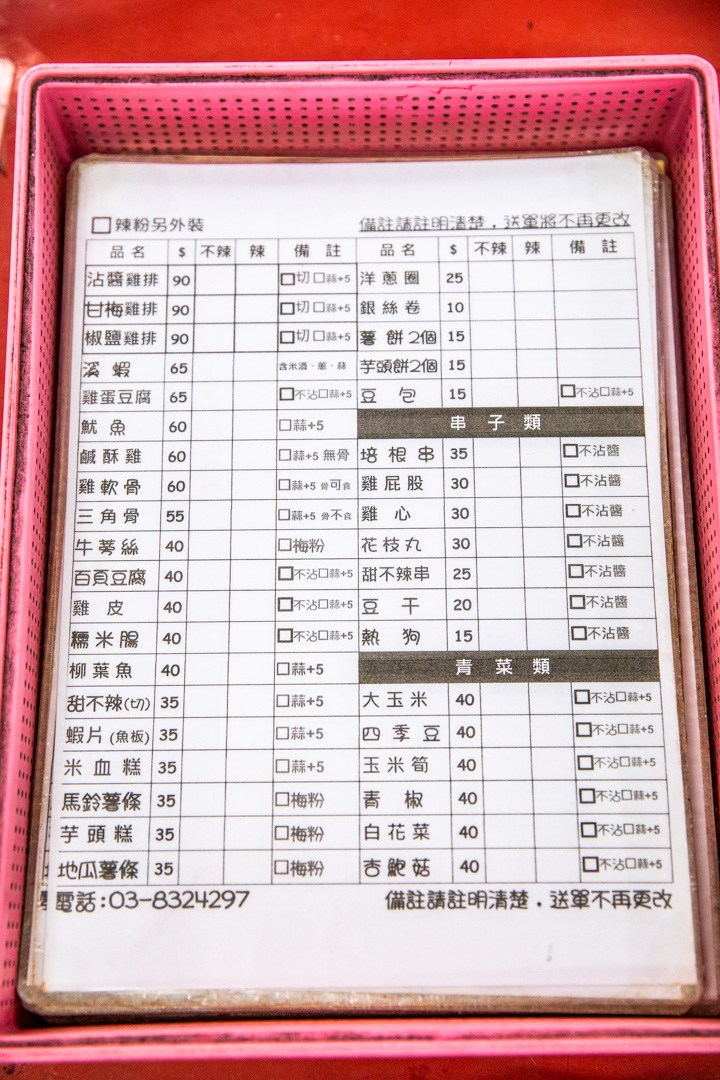 ☐辣粉另外裝 備註請註明清楚，送單將不再更改
品名 $ 不辣 辣 備註 品名 $ 不辣 辣 備註
沾醬雞排 90 ☐切☐蒜+5 洋蔥圈 25
甘梅雞排 90 ☐切☐蒜+5 銀絲卷 10
椒鹽雞排 90 ☐切☐蒜+5 薯餅2個 15
溪蝦 65 含米酒、蔥、蒜 芋頭餅2個 15
雞蛋豆腐 65 ☐不沾☐蒜+5 豆包 15 ☐不沾☐蒜+5
魷魚 60 ☐蒜+5 串子類
鹹酥雞 60 ☐蒜+5 無骨 培根串 35 ☐不沾醬
雞軟骨 60 ☐蒜+5 骨可食 雞屁股 30 ☐不沾醬
三角骨 55 ☐蒜+5 骨不食 雞心 30 ☐不沾醬
牛蒡絲 40 ☐梅粉 花枝丸 30 ☐不沾醬
百頁豆腐 40 ☐不沾☐蒜+5 甜不辣串 25 ☐不沾醬
雞皮 40 ☐不沾☐蒜+5 豆干 20 ☐不沾醬
糯米腸 40 ☐不沾☐蒜+5 熱狗 15 ☐不沾醬
柳葉魚 40 ☐蒜+5 青菜類
甜不辣(切) 35 ☐蒜+5 大玉米 40 ☐不沾☐蒜+5
蝦片(魚板) 35 ☐蒜+5 四季豆 40 ☐不沾☐蒜+5
米血糕 35 ☐蒜+5 玉米筍 40 ☐不沾☐蒜+5
馬鈴薯條 35 ☐梅粉 青椒 40 ☐不沾☐蒜+5
芋頭糕 35 ☐梅粉 白花菜 40 ☐不沾☐蒜+5
地瓜薯條 35 ☐梅粉 杏鮑菇 40 ☐不沾☐蒜+5
電話:03-8324297 備註請註明清楚，送單不再更改